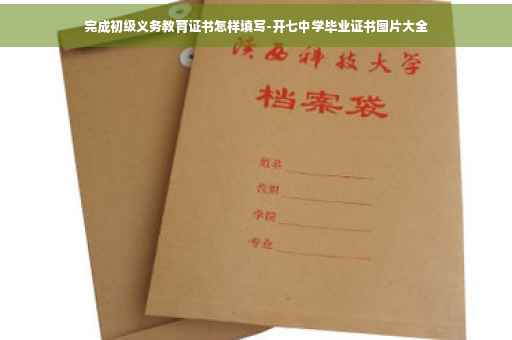 完成初级义务教育证书怎样填写-开七中学毕业证书图片大全
陕西科技大学
档案袋
姓名
学院
专业